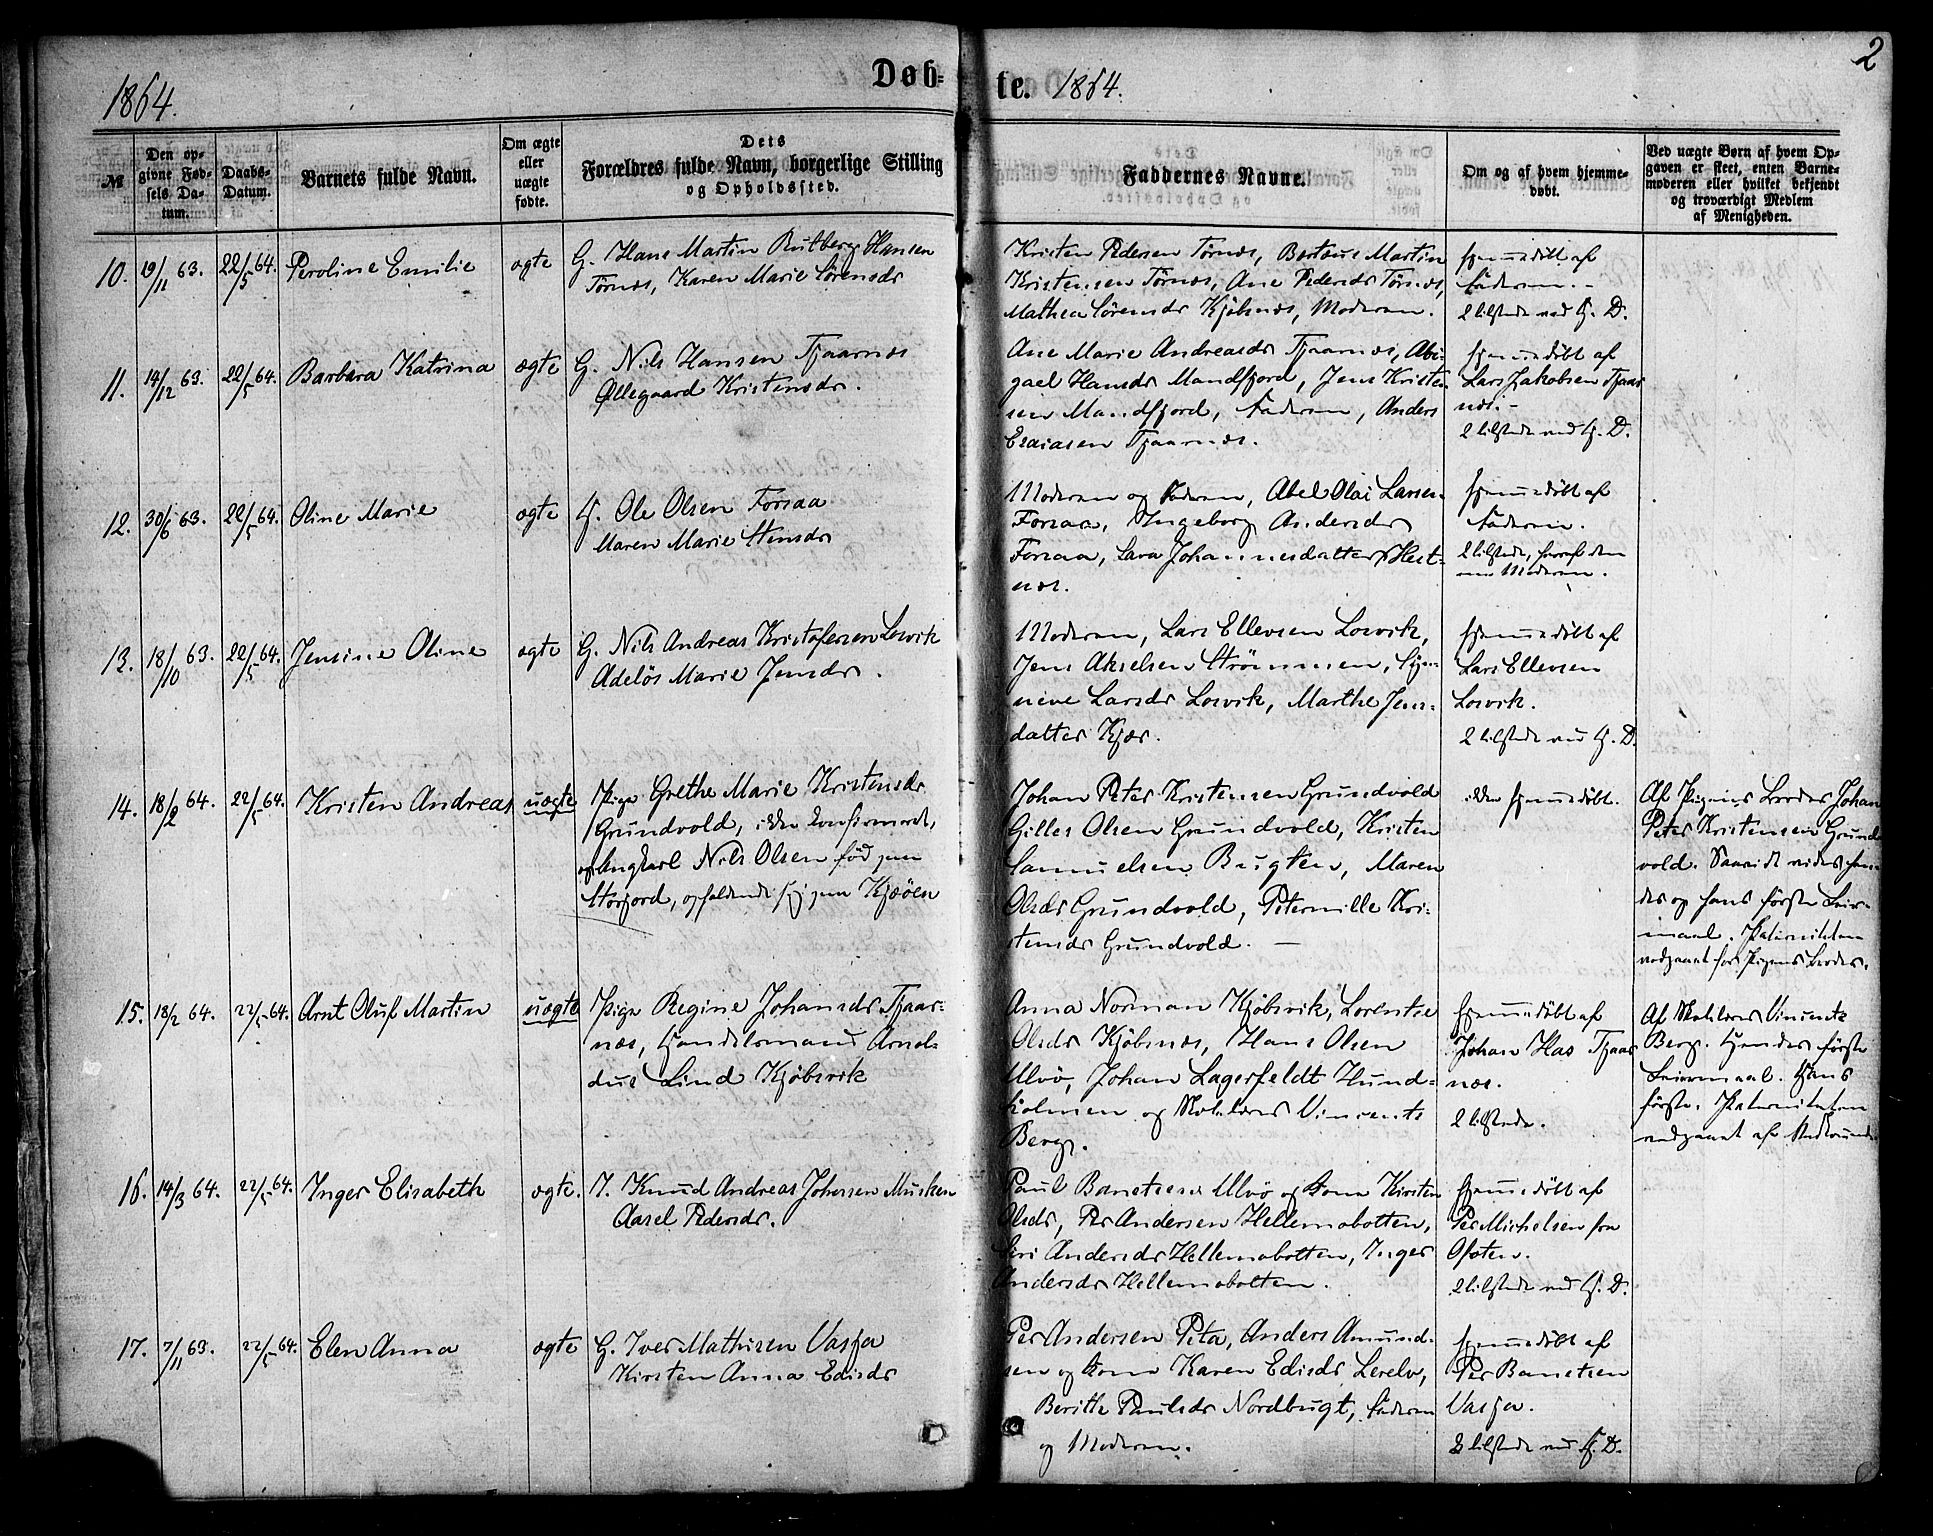 2
1864.
Døb-
te. 1864.
№
Den op-
givne Fød-
sels Da-
tum.
Daabs-
Datum.
Barnets fulde Navn.
Om ægte
eller
uægte
fødte.
Dets
Forældres fulde Navn, borgerlige Stilling
og Opholdssted.
Faddernes Navne.
Om og af hvem hjemme-
døbt.
Ved uægte Børn af hvem Op-
gaven er skeet, enten Barne-
moderen eller hvilket bekjendt
og troværdigt Medlem
af Menigheden.
10. 19/11 63. 22/5 64. Peroline Emilie ægte
G. Hans Martin Rutberg Hansen
Tørnæs, Karen Marie Sørensdr
Kristen Pedersen Tørnæs, Bertæus Martin
Kristensen Tørnæs, Ane Pedersdr Tørnæs,
Mathea Sørensdr Kjøbsnæs, Moderen.
Hjemmedøbt af
Faderen.-
2 tilstede ved Hj. D.
11. 14/12 63. 22/5 64. Barbara Katrina ægte
G. Nils Hansen Tjaarnæs
Øllegaard Kristensdr.
Ane Marie Andreasdr Tjaarnæs, Abi-
gael Hansdr Mandfjord, Jens Kristen-
sen Mandfjord, Faderen, Anders
Esaiasen Tjaarnæs.
Hjemmedøbt af
Lars Jakobsen Tjaar
næs.-
2 tilstede ved Hj. D.
12. 30/6 63. 22/5 64. Oline Marie ægte
G. Ole Olsen Forsaa
Maren Marie Stensdr
Moderen og Faderen, Abel Olai Larsen
Forsaa, Ingeborg Andersdr
Forsaa, Lara Johannesdatter Hest-
næs.
Hjemmedøbt af
Faderen.
2 tilstede, foruden
Moderen.
13. 18/10 63. 22/5 64. Jensine Oline ægte
G. Nils Andreas Kristofersen Losvik
Adeløs Marie Jensdr.
Moderen, Lars Ellevsen Losvik,
Jens Akselsen Strømmen, Syn-
neve Larsdr Losvik, Marthe Jens-
datter Kjær.
Hjemmedøbt af
Lars Ellevsen
Losvik.
2 tilstede ved Hj. D.
14. 18/2 64. 22/5 64. Kristen Andreas uægte
Pige Grethe Marie Kristensdr
Grundvold, ikke konfirmeret,
og Ungkarl Nils Olsen fød paa
Storjord, opholdende sig paa Kjøøen
Johan Peter Kristensen Grundvold
Gilles Olsen Grundvold, Kristen
Samuelsen Bugten, Maren
Olsdr Grundvold, Peternille Kri-
stensdr Grundvold. —
ikke hjemmedøbt.
Af Pigens Broder Johan
Peter Kristensen Grund
vold. Saavidt vides hen-
des og hans første Leier-
maal. Paterniteten
vedgaaet for Pigens Broder.
15. 18/2 64. 22/5 64. Arnt Oluf Martin uægte
Pige Regine Johansdr Tjaar-
næs, Handelsmand Arnol-
dus Lind Kjøbsvik
Anna Norman Kjøbsvik, Lorentse
Olsdr Kjøbsnæs, Hans Olsen
Ulvø, Johan Lagerfeldt Hund-
holmen og Skolelærer Vincents
Berg.
Hjemmedøbt af
Johan Has Tjaar
næs.
2 tilstede.
Af Skolelærer Vincents
Berg. Hendes første
Leiermaal. Hans
første. Paterniteten
vedgaaet af Vedkommende
16. 14/3 64. 22/5 64. Inger Elisabeth ægte.
I. Knud Andreas Johnsen Musken
Aasel Pedersdr.
Paul Bantsen Ulvø og Kone Kirsten
Olsdr, Per Andersen Hellemobotten,
Siri Andersdr Hellemobotten, Inger
Andersdr Hellemobotten.
Hjemmedøbt af
Per Michelsen fra
Ofoten.
2 tilstede ved Hj. D.
17. 7/11 63. 22/5 64. Elen Anna ægte
G. Iver Mathisen Vasja
Kirsten Anna Edisdr
Per Andersen Peta, Anders Amund-
sen og Kone Karen Edisdr Lerelv,
Berithe Paulsdr Nordbugt, Faderen
og Moderen.
Hjemmedøbt af
Per Bantsen
Vasja.
2 tilstede ved Hj. D.